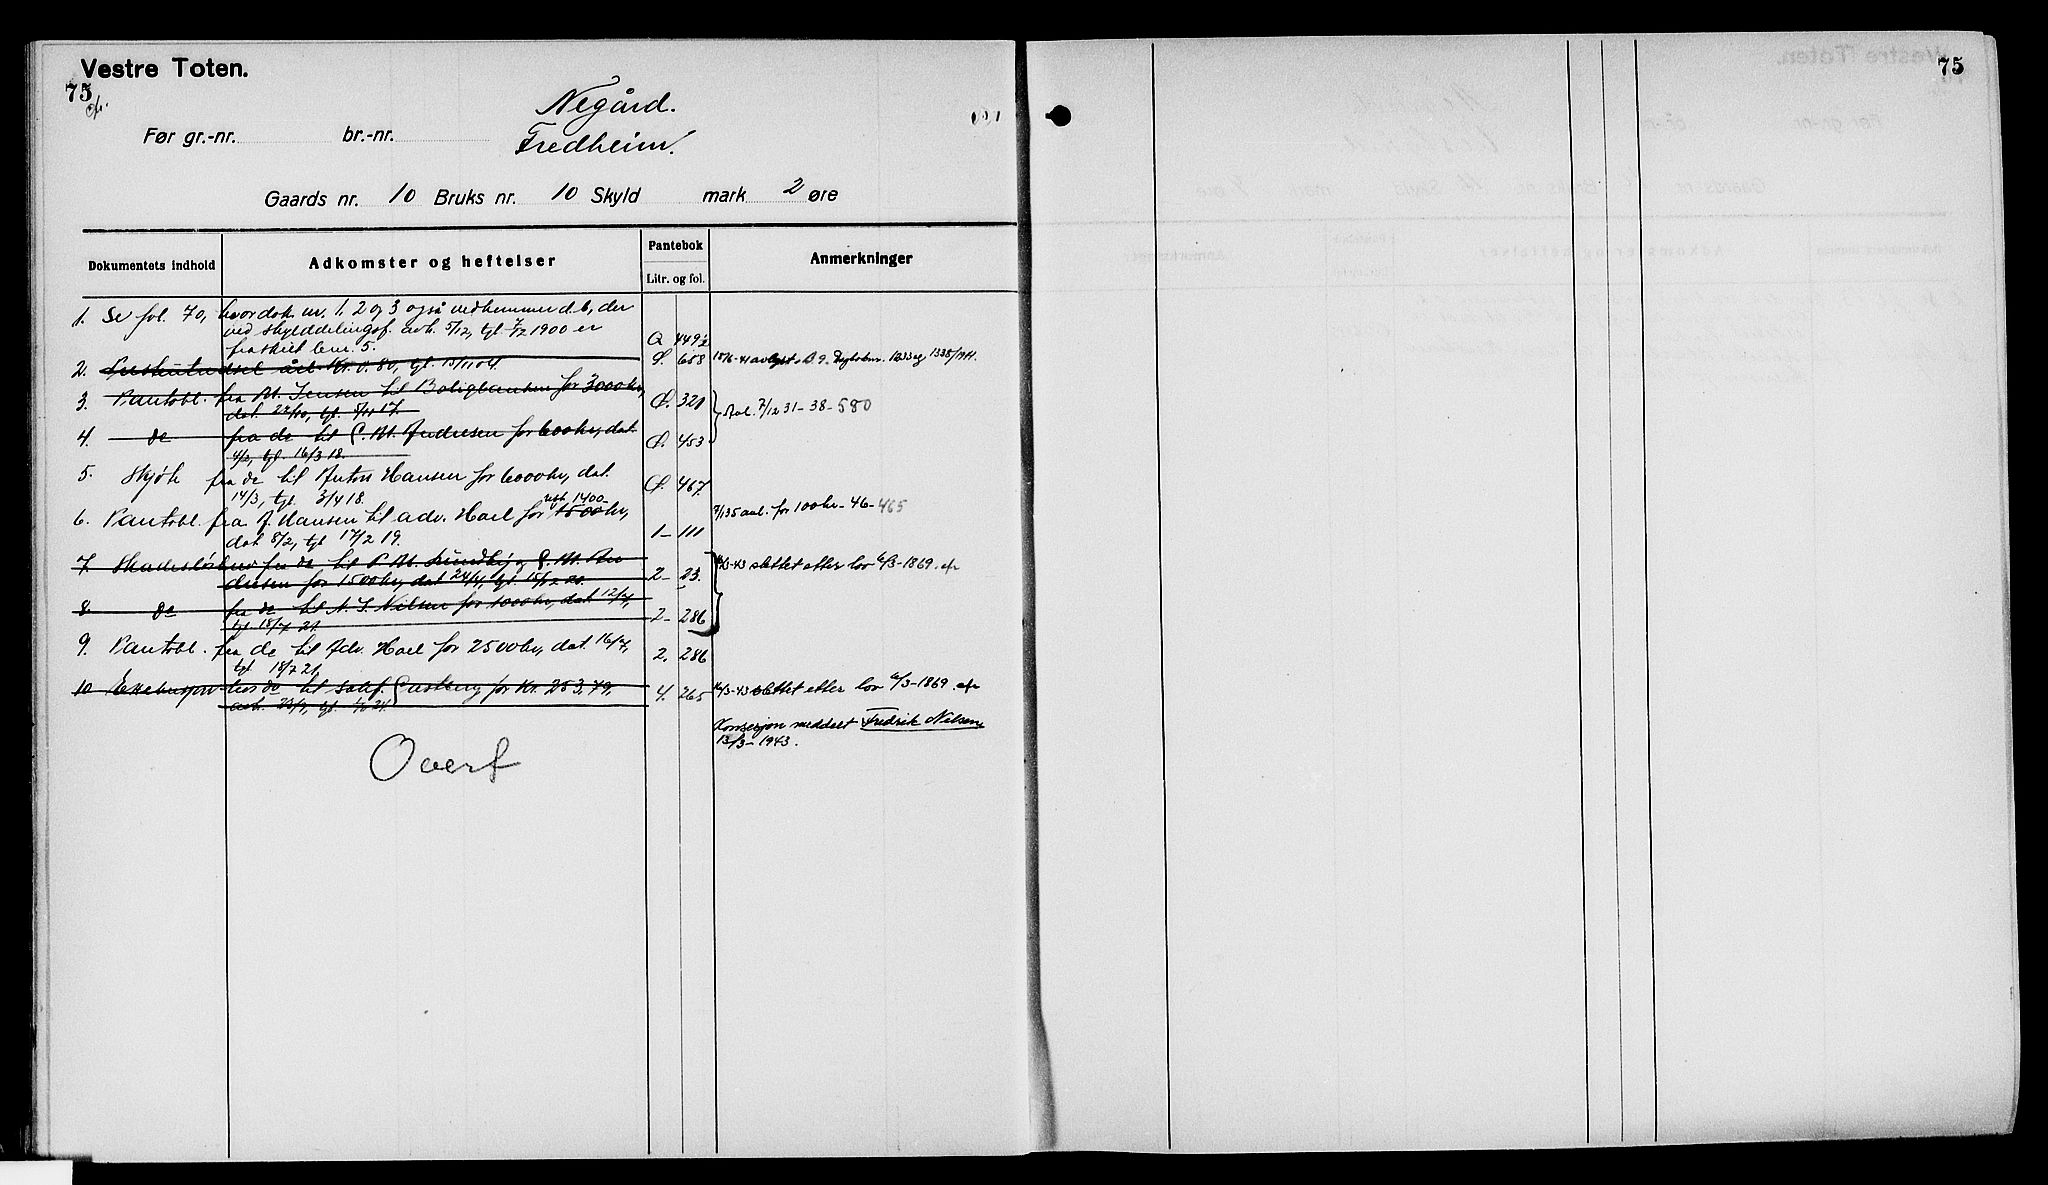 Vestre Toten.
75
75
Negård.
Før gr.-nr. br.-nr.
Fredheim.
Gaards nr. 10 Bruks nr. 10 Skyld mark 2 øre
Dokumentets indhold
Adkomster og heftelser
Pantebok
Litr. og fol.
Anmerkninger
1. Se fol. 70, hvor dok nr. 1, 2 og 3 også vedkommer d.b., der
ved skylddelingsf. avh. 5/12, tgl. 7/2 1900 er
fraskilt bnr. 5. Q 449½
2. årl. Kr. 0.80, tgl. 15/11 04. 658
3. Pantobl. fra M. Jensen til Boligbanken for 3000 kr,
dat. 22/10, tgl. 5/11 17. 321 7/12 31-38-580
4. do fra do til C. M. Andresen for 600 kr, dat.
4/2, tgl. 16/3 18. 453
5. Skjøte fra do til Anton Hansen for 6000 kr, dat.
14/3, tgl. 3/4 18. 467
nedk 1400
6. Pantobl. fra A. Hansen til adv. Hoel for 1500 kr,
dat 8/2, tgl 17/2 19. 1- 111 avl. for 100 kr - 46-465
7. Skadesløsbrev fra do til P. M. Lundby og C. M. An
dresen for 1500 kr, dat 24/4, tgl. 20. 2- 23. slettet etter lov 6/3-1869.
8. do fra do til N. S. Nilsen for 1000 kr, dat 12/7,
tgl. 18/7 21. 2- 286
9. Pantobl. fra do til Adv. Hoel for 2500 kr, dat. 16/7,
tgl 18/7 21, 2. 286
10 hos do til sakf. Castberg for Kr. 253,79,
avh. 23/9, tgl. 24. 4. 265 slettet etter lov 6/3-1869.
Konsesjon meddelt Fredrik Nilsen
13/3-1943.
Overf